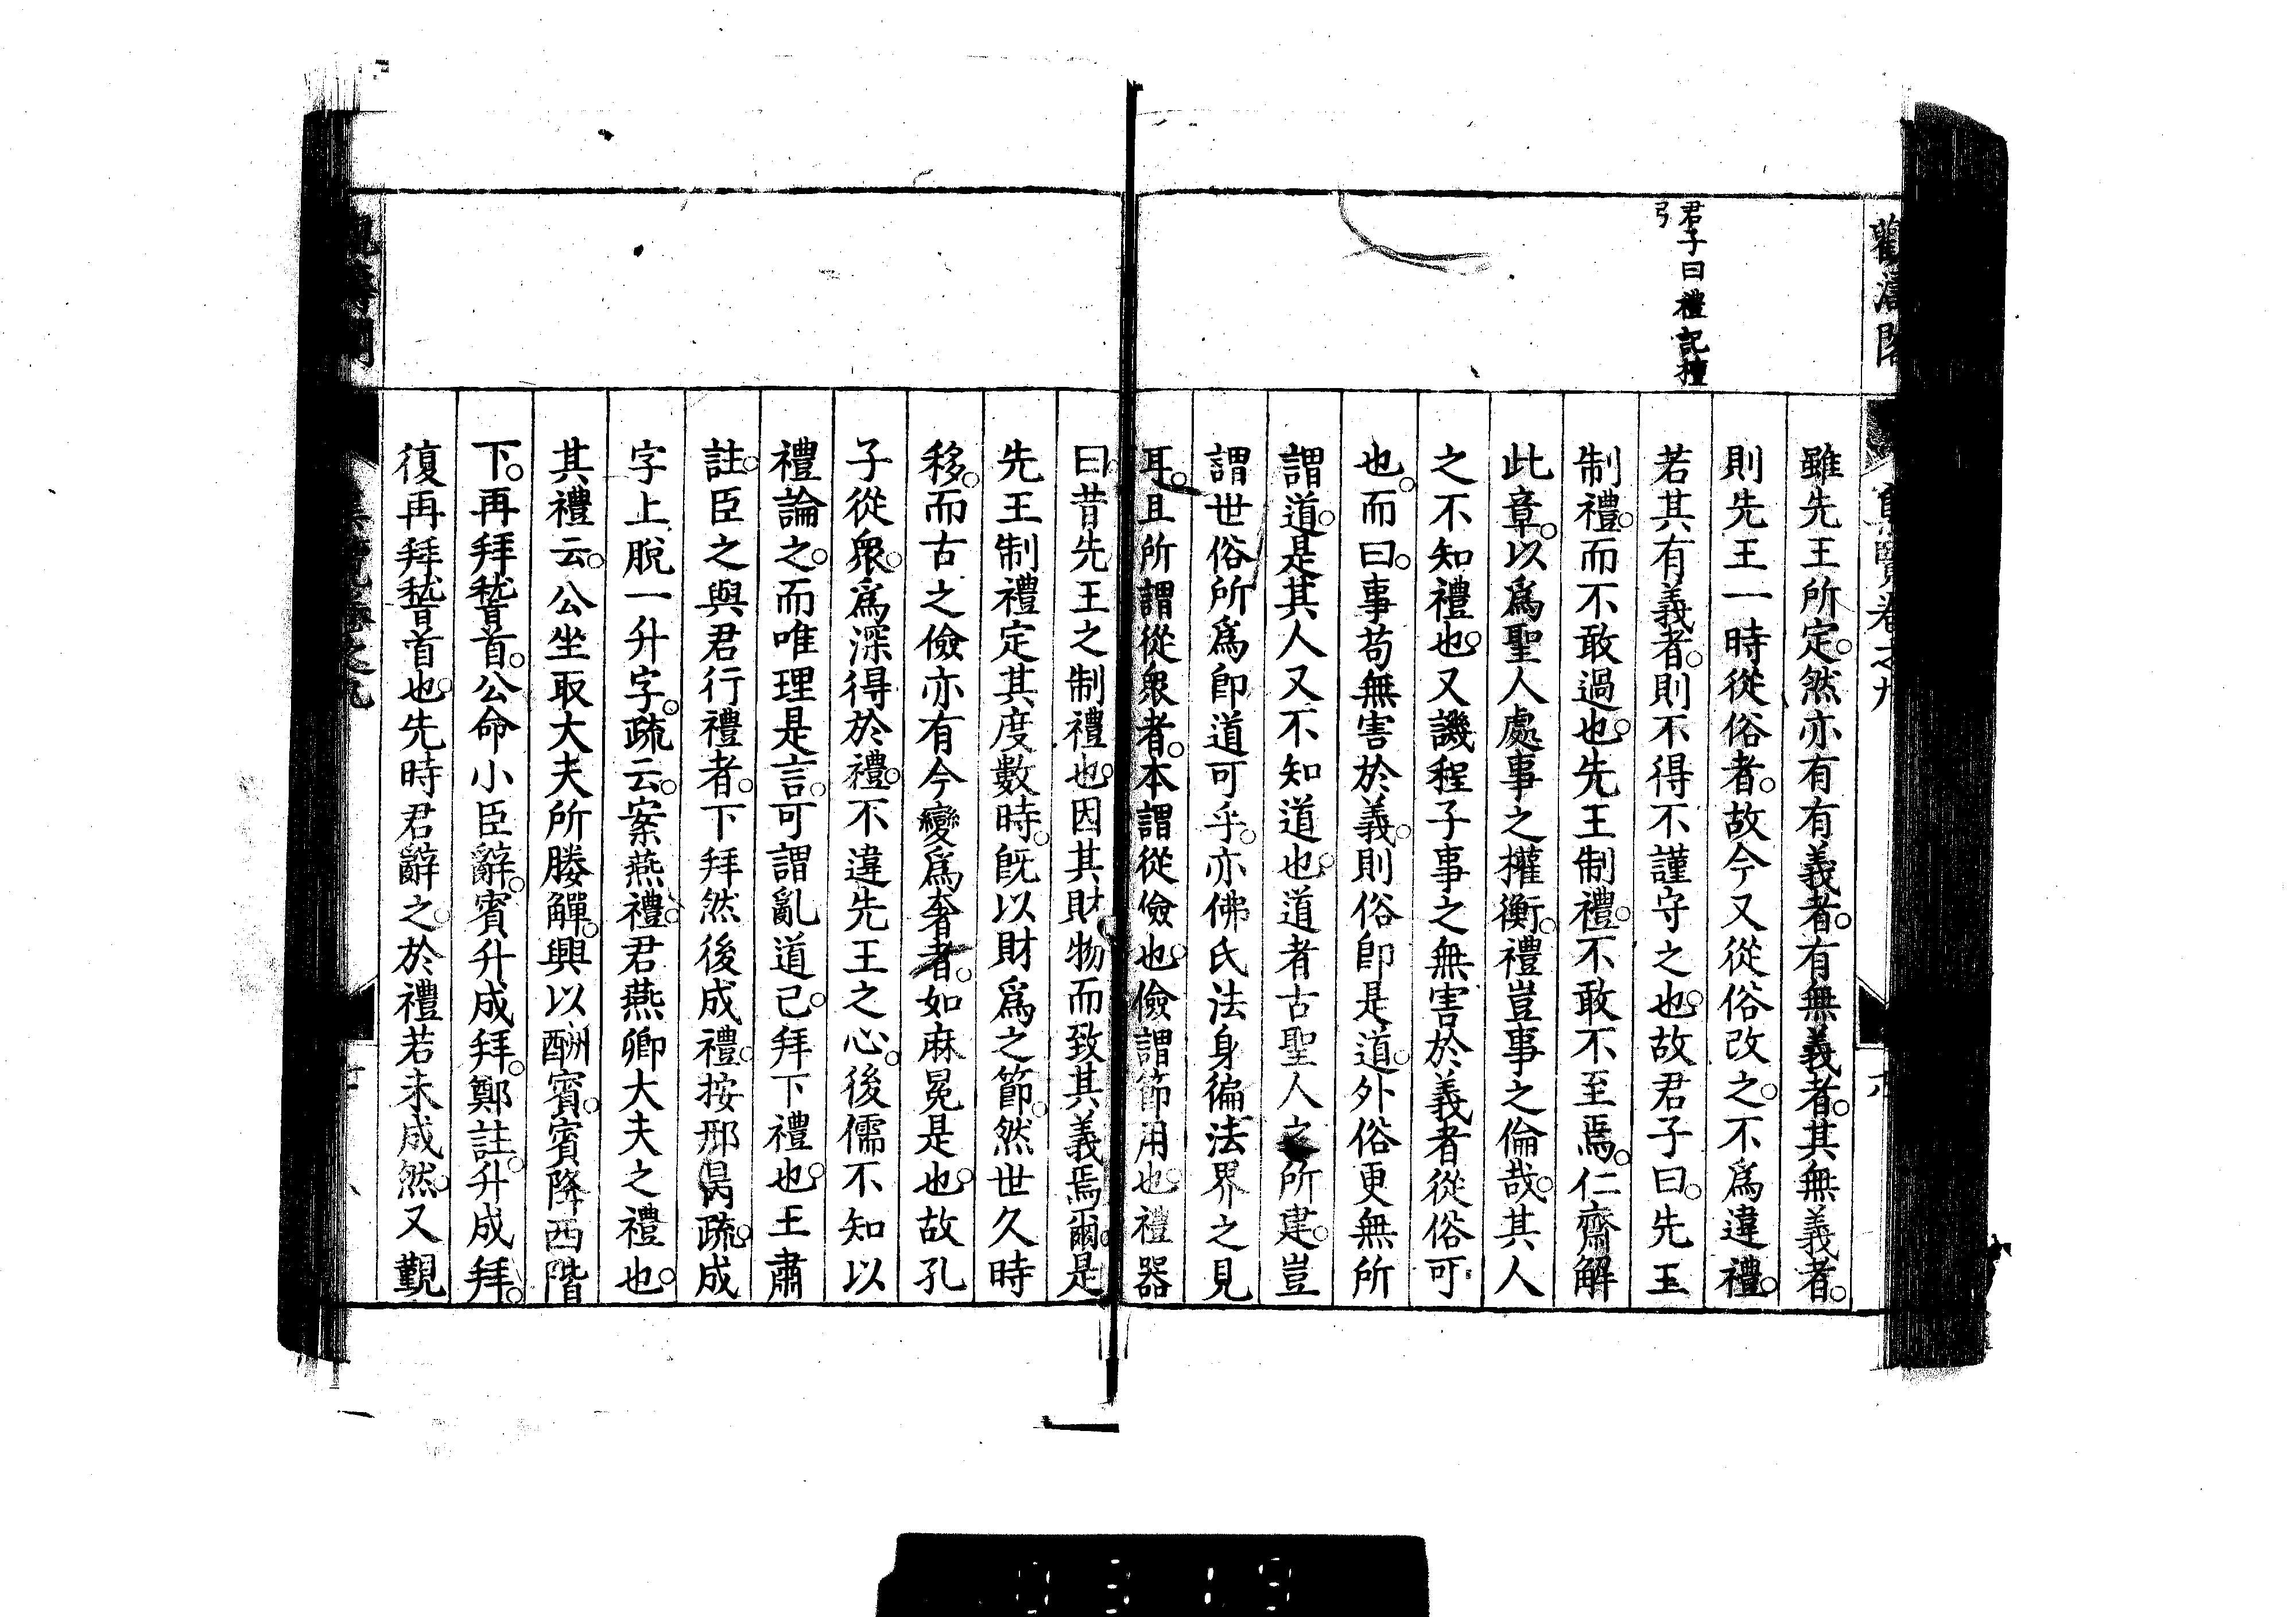 君子曰禮記檀
弓
雖先王所定。然亦有有義者。有無義者。其無義者。
則先王一時從俗者。故今又從俗改之。不爲違禮。
若其有義者。則不得不謹守之也。故君子曰。先王
制禮。而不敢過也。先王制禮。不敢不至焉。仁齋解
此章。以爲聖人處事之權衡。禮豈事之倫哉。其人
之不知禮也。又譏程子事之無害於義者從俗可
也。而曰。事苟無害於義。則俗卽是道。外俗更無所
謂道。是其人又不知道也。道者古聖人之所建。豈
謂世俗所爲卽道可乎。亦佛氏法身徧法界之見
耳。且所謂從衆者。本謂從儉也。儉謂節用也。禮器
曰昔先王之制禮也。因其財物而致其義焉爾。是
先王制禮定其度數時。旣以財爲之節。然世久時
移。而古之儉亦有今變爲奢者。如麻冕是也。故孔
子從衆。爲深得於禮。不違先王之心。後儒不知以
禮論之。而唯理是言。可謂亂道已。拜下禮也。王肅
註。臣之與君行禮者。下拜然後成禮。按邢昺疏。成
字上脫一升字。疏云。案燕禮。君燕卿大夫之禮也。
其禮云。公坐取大夫所媵觶。興以酬賓。賓降西階
下。再拜稽首。公命小臣辭。賓升成拜。鄭註。升成拜。
復再拜稽首也。先時君辭之。於禮若未成然。又覲